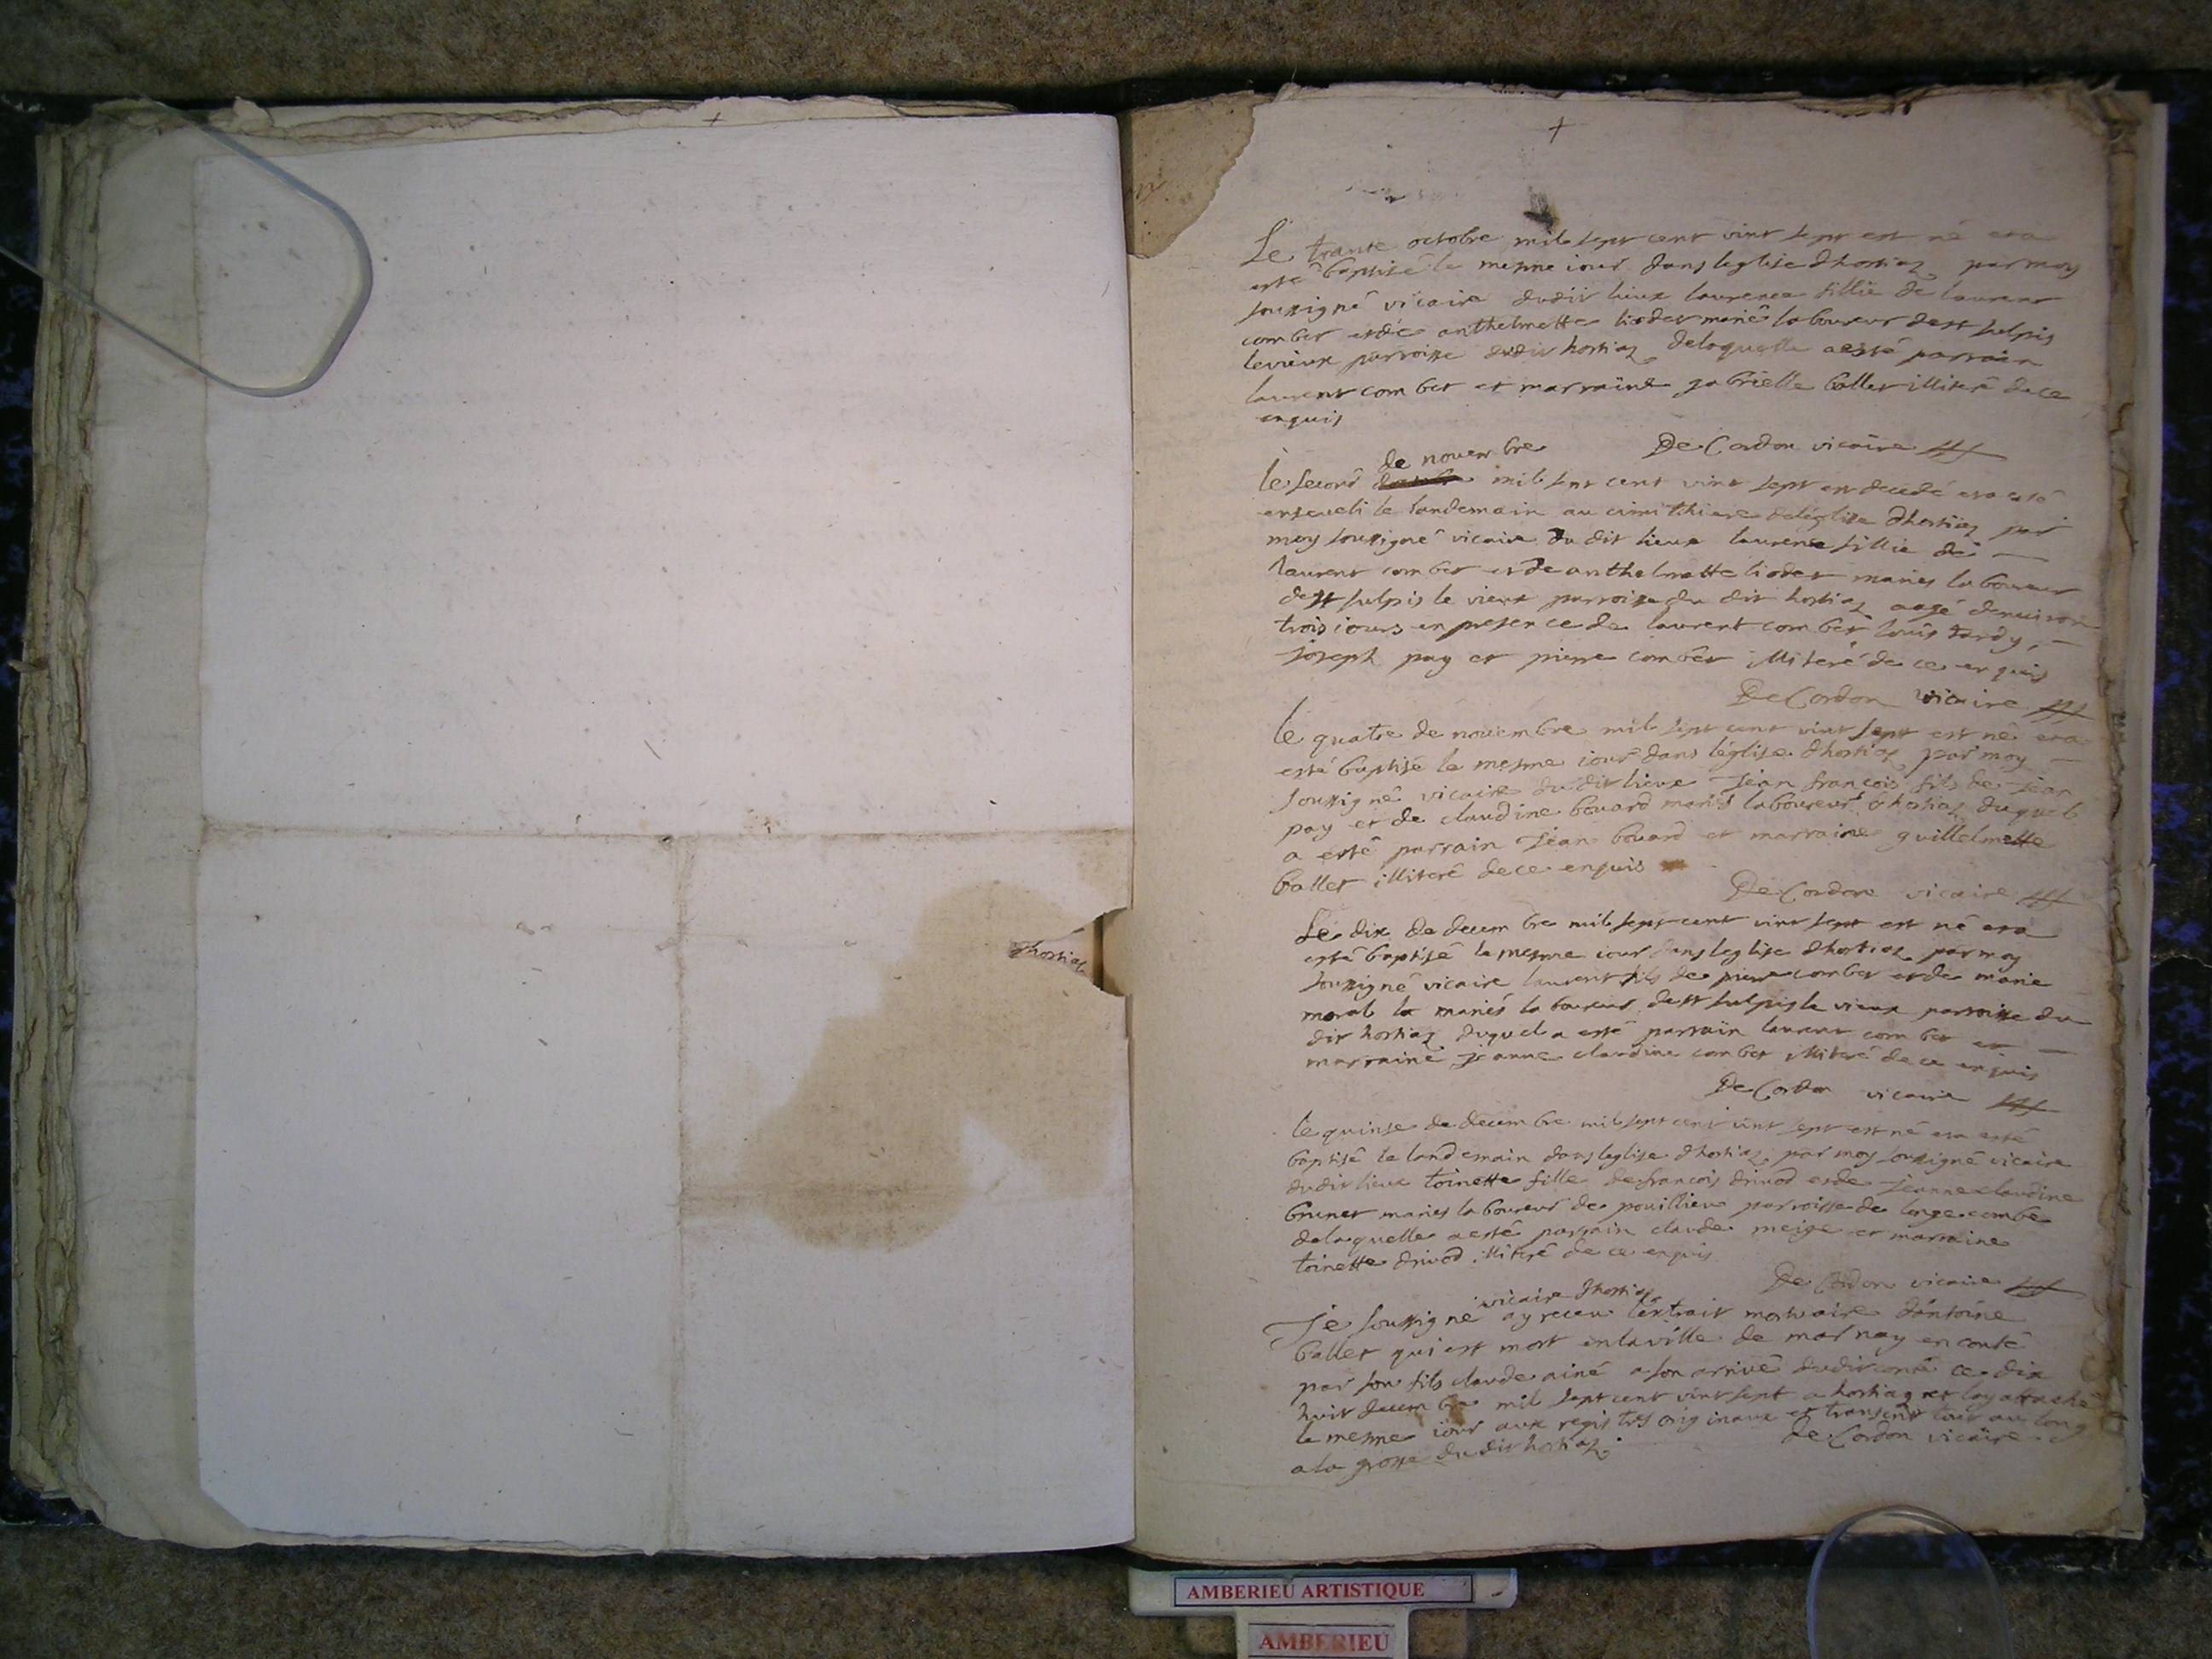 dhostiaz
Le trante octobre mil sept cent vint sept est né et a
esté baptisé le mesme iour dans leglise dhostiaz par moy
soussigné vicaire dudit lieux laurence fillie de laurent
combet et de anthelmette liodet mariés laboureur de st sulpis
levieux parroisse dudit hostiaz delaquelle a esté parrain
laurent combet et marraine gabrielle ballet illiteré de ce
enquis
De Cordon vicaire
de novembre
le second mil sept cent vint sept est decedé et a esté
enseveli le landemain au cimithiere de léglise dhostiaz par
moy soussigné vicaire du dit lieux laurence fillie de
laurent combet et de anthelmette liodet mariés laboureur
de st sulpis le vieux parroisse du dit hostiaz aagé denuiron
trois iours en presence de laurent combet louis tardy,
joseph pay et pierre combet illiteré de ce enquis
De Cordon vicaire
le quatre de novembre mil sept cent vint sept est né et a
esté baptisé le mesme iour dans léglise dhostiaz par moy
soussigné vicaire dudit lieux Jean françois fils de Jean
pay et de claudine bouard mariés laboureur dhostiaz duquel
a esté parrain Jean bouard et marraine guillelmette
ballet illiteré de ce enquis
De Cordon vicaire
Le dix de decembre mil sept cent vint sept est né et a
esté baptisé le mesme iour dans leglise dhostiaz par moy
soussigné vicaire laurent fils de pierre combet et de marie
moral la mariés laboureur de st sulpis le vieux parroisse du
dit hostiaz duquel a esté parrain laurent combet et
marraine jeanne claudine combet illiteré de ce enquis
De Cordon vicaire
le quinse de decembre mil sept cent vint sept est né et a esté
baptisé le landemain dans leglise dhostiaz par moy soussigné vicaire
dudit lieux toinette fille de françois drivod et de Jeanne claudine
brunet mariés laboureur de pouillieu parroisse de longecombe
de laquelle a esté parrain claude meige et marraine
toinette drivod illiteré de ce enquis
De Cordon vicaire
vicaire dhostiaz
Je soussigné ay receu lextrait mortuaire dantoine
ballet qui est mort en la ville de marnay en conté
par son fils claude ainé a son arrivé dudit conté ce dix
huit decembre mil sept cent vint sept a hostiaz et lay attaché
le mesme iour aux registres originaux et transcrit tout au long
a la grosse du dit hostiaz.
de Cordon vicaire
AMBERIEU ARTISTIQUE
AMBERIEU